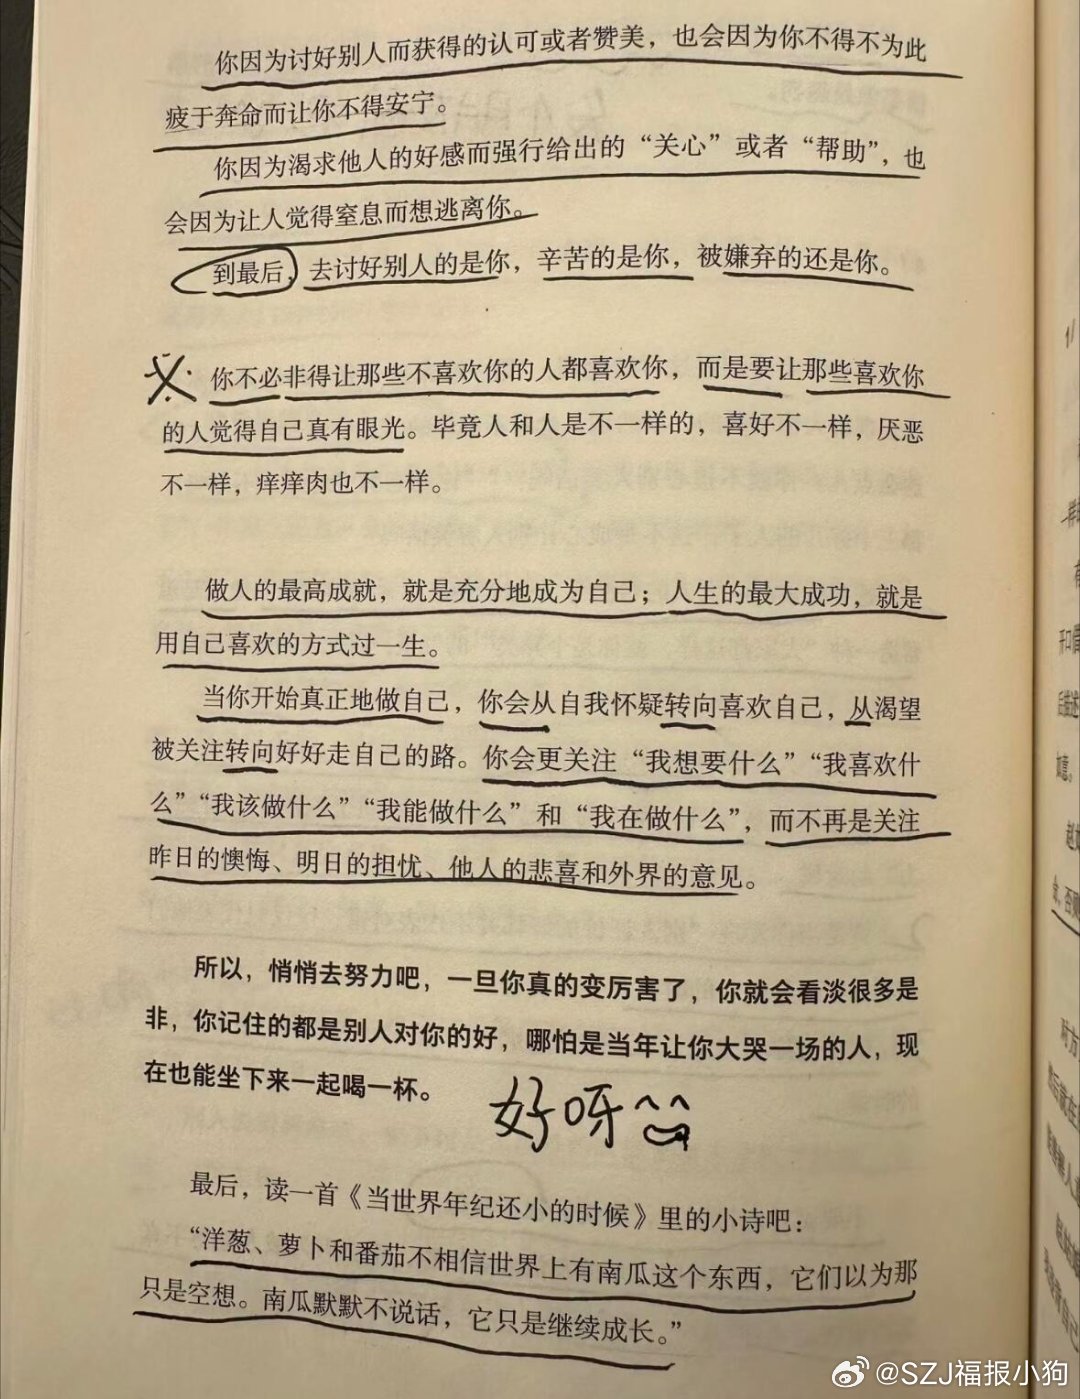 你因为讨好别人而获得的认可或者赞美，也会因为你不得不为此
疲于奔命而让你不得安宁。
你因为渴求他人的好感而强行给出的“关心”或者“帮助”，也
会因为让人觉得窒息而想逃离你。
到最后，去讨好别人的是你，辛苦的是你，被嫌弃的还是你。
你不必非得让那些不喜欢你的人都喜欢你，而是要让那些喜欢你
的人觉得自己真有眼光。毕竟人和人是不一样的，喜好不一样，厌恶
不一样，痒痒肉也不一样。
做人的最高成就，就是充分地成为自己；人生的最大成功，就是
用自己喜欢的方式过一生。
当你开始真正地做自己，你会从自我怀疑转向喜欢自己，从渴望
被关注转向好好走自己的路。你会更关注“我想要什么”“我喜欢什
么”“我该做什么”“我能做什么”和“我在做什么”，而不再是关注
昨日的懊悔、明日的担忧、他人的悲喜和外界的意见。
所以，悄悄去努力吧，一旦你真的变厉害了，你就会看淡很多是
非，你记住的都是别人对你的好，哪怕是当年让你大哭一场的人，现
在也能坐下来一起喝一杯。
好呀
最后，读一首《当世界年纪还小的时候》里的小诗吧：
“洋葱、萝卜和番茄不相信世界上有南瓜这个东西，它们以为那
只是空想。南瓜默默不说话，它只是继续成长。”
@SZJ福报小狗